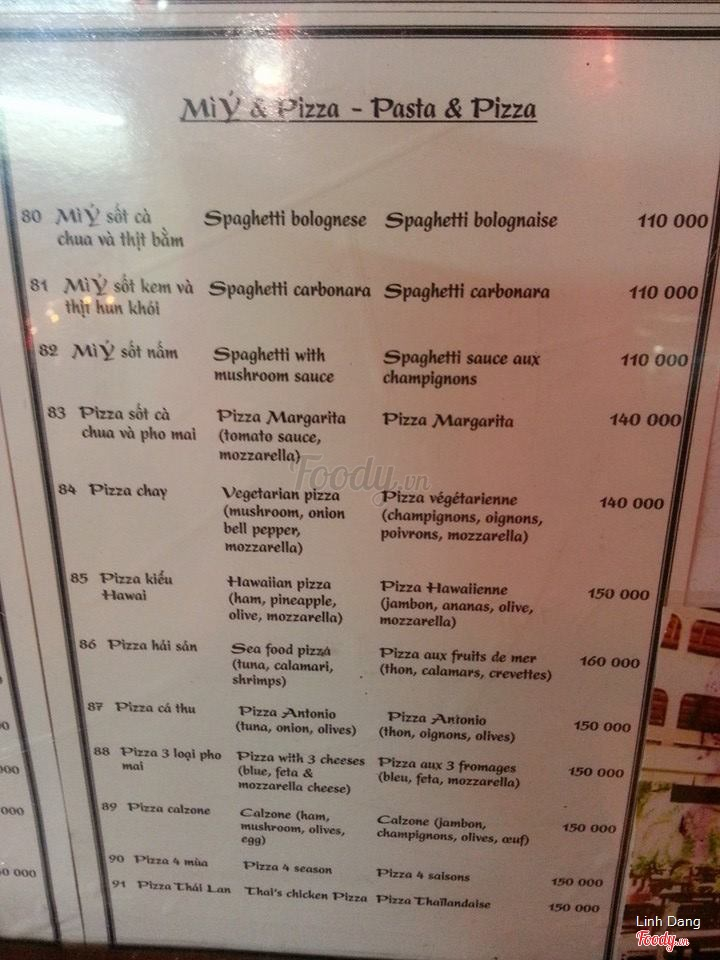 Mì Ý & Pizza - Pasta & Pizza
80 Mì Ý sốt cà Spaghetti bolognese Spaghetti bolognaise 110 000
chua và thịt bằm
81 Mì Ý sốt kem và Spaghetti carbonara Spaghetti carbonara 110 000
thịt hun khói
82 Mì Ý sốt nấm Spaghetti with Spaghetti sauce aux 110 000
mushroom sauce champignons
83 Pizza sốt cà Pizza Margarita Pizza Margarita 140 000
chua và pho mai (tomato sauce,
mozzarella)
Foody.vn
84 Pizza chay Vegetarian pizza Pizza végétarienne 140 000
(mushroom, onion (champignons, oignons,
bell pepper, poivrons, mozzarella)
mozzarella)
85 Pizza kiểu Hawaiian pizza Pizza Hawaiienne 150 000
Hawai (ham, pineapple, (jambon, ananas, olive,
olive, mozzarella) mozzarella)
86 Pizza hải sản Sea food pizza Pizza aux fruits de mer 160 000
(tuna, calamari, (thon, calamars, crevettes)
shrimps)
87 Pizza cá thu Pizza Antonio Pizza Antonio 150 000
(tuna, onion, olives) (thon, oignons, olives)
88 Pizza 3 loại pho Pizza with 3 cheeses Pizza aux 3 fromages 150 000
mai (blue, feta & (bleu, feta, mozzarella)
mozzarella cheese)
89 Pizza calzone Calzone (ham, Calzone (jambon, 150 000
mushroom, olives, champignons, olives, œuf)
egg)
90 Pizza 4 mùa Pizza 4 season Pizza 4 saisons 150 000
91 Pizza Thái Lan Thai's chicken Pizza Pizza Thaïlandaise 150 000
Linh Dang
Foody.vn